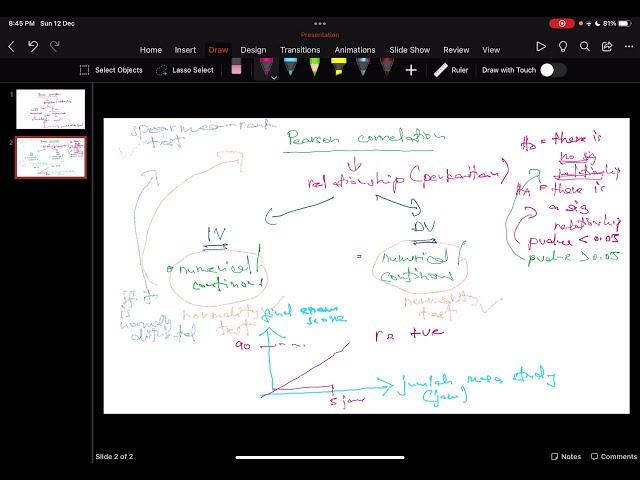 8:45 PM Sun 12 Dec
81%
Presentation
Home Insert Draw Design Transitions Animations Slide Show Review View
Select Objects Lasso Select Ruler Draw with Touch
1
2
spearman rank
test
Pearson correlation
relationship (perkaitan)
IV
numerical/
continous
DV
numerical/
continous
H0 = there is
no sig
relationship
HA = there is
a sig
relationship
pvalue < 0.05
pvalue > 0.05
if it
is
normally
normality
test
normality
test
final exam
score
90
r = +ve
jumlah masa study
(jam)
5 jam
Slide 2 of 2
Notes Comments